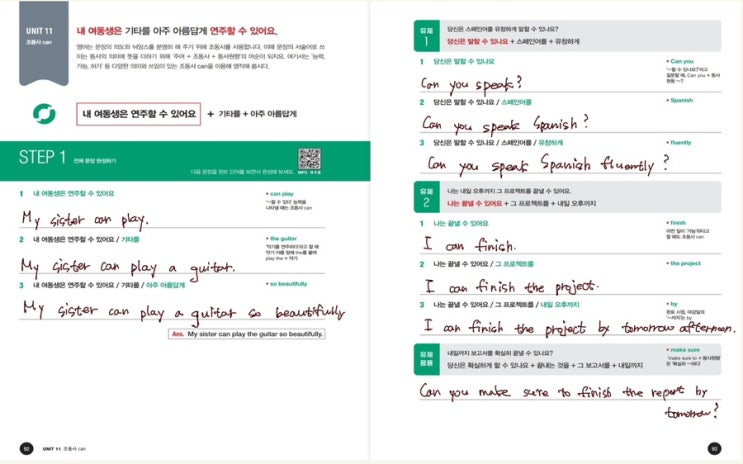 UNIT 11
조동사 can
내 여동생은 기타를 아주 아름답게 연주할 수 있어요.
영어는 문장의 의도와 뉘앙스를 분명히 해 주기 위해 조동사를 사용합니다. 이때 문장의 서술어로 쓰
이는 동사의 의미에 뜻을 더하기 위해 '주어 + 조동사 + 동사원형'의 어순이 되지요. 여기서는 '능력,
가능, 허가' 등 다양한 의미와 쓰임이 있는 조동사 can을 이용해 영작해 봅시다.
내 여동생은 연주할 수 있어요 + 기타를 + 아주 아름답게
STEP 1 전체 문장 완성하기
다음 문장을 힌트 단어를 보면서 완성해 보세요.
1 내 여동생은 연주할 수 있어요
+ can play
'~할 수 있다' 능력을
나타낼 때는 조동사 can
My sister can play.
2 내 여동생은 연주할 수 있어요 / 기타를
+ the guitar
'악기를 연주하다'라고 할 때
악기 이름 앞에 the를 붙여
play the + 악기
My sister can play a guitar.
3 내 여동생은 연주할 수 있어요 / 기타를 / 아주 아름답게
+ so beautifully
My sister can play a guitar so beautifully
Ans. My sister can play the guitar so beautifully.
92 UNIT 11 조동사 can
유제
1
당신은 스페인어를 유창하게 말할 수 있나요?
당신은 말할 수 있나요 + 스페인어를 + 유창하게
1 당신은 말할 수 있나요
+ Can you
'~할 수 있나요?'라고
질문할 때, Can you + 동사
원형 ~?
Can you speak?
2 당신은 말할 수 있나요 / 스페인어를
+ Spanish
Can you speak Spanish?
3 당신은 말할 수 있나요 / 스페인어를 / 유창하게
+ fluently
Can you speak Spanish fluently?
유제
2
나는 내일 오후까지 그 프로젝트를 끝낼 수 있어요.
나는 끝낼 수 있어요 + 그 프로젝트를 + 내일 오후까지
1 나는 끝낼 수 있어요
+ finish
어떤 일이 '가능'하다고
할 때도 조동사 can
I can finish.
2 나는 끝낼 수 있어요 / 그 프로젝트를
+ the project
I can finish the project.
3 나는 끝낼 수 있어요 / 그 프로젝트를 / 내일 오후까지
+ by
완료 시점, 마감일의
'~까지'는 by
I can finish the project by tomorrow afternoon.
유제
응용
내일까지 보고서를 확실히 끝낼 수 있나요?
당신은 확실하게 할 수 있나요 + 끝내는 것을 + 그 보고서를 + 내일까지
+ make sure
'make sure to + 동사원형'
은 '확실히 ~하다'
Can you make sure to finish the report by
tomorrow?
93